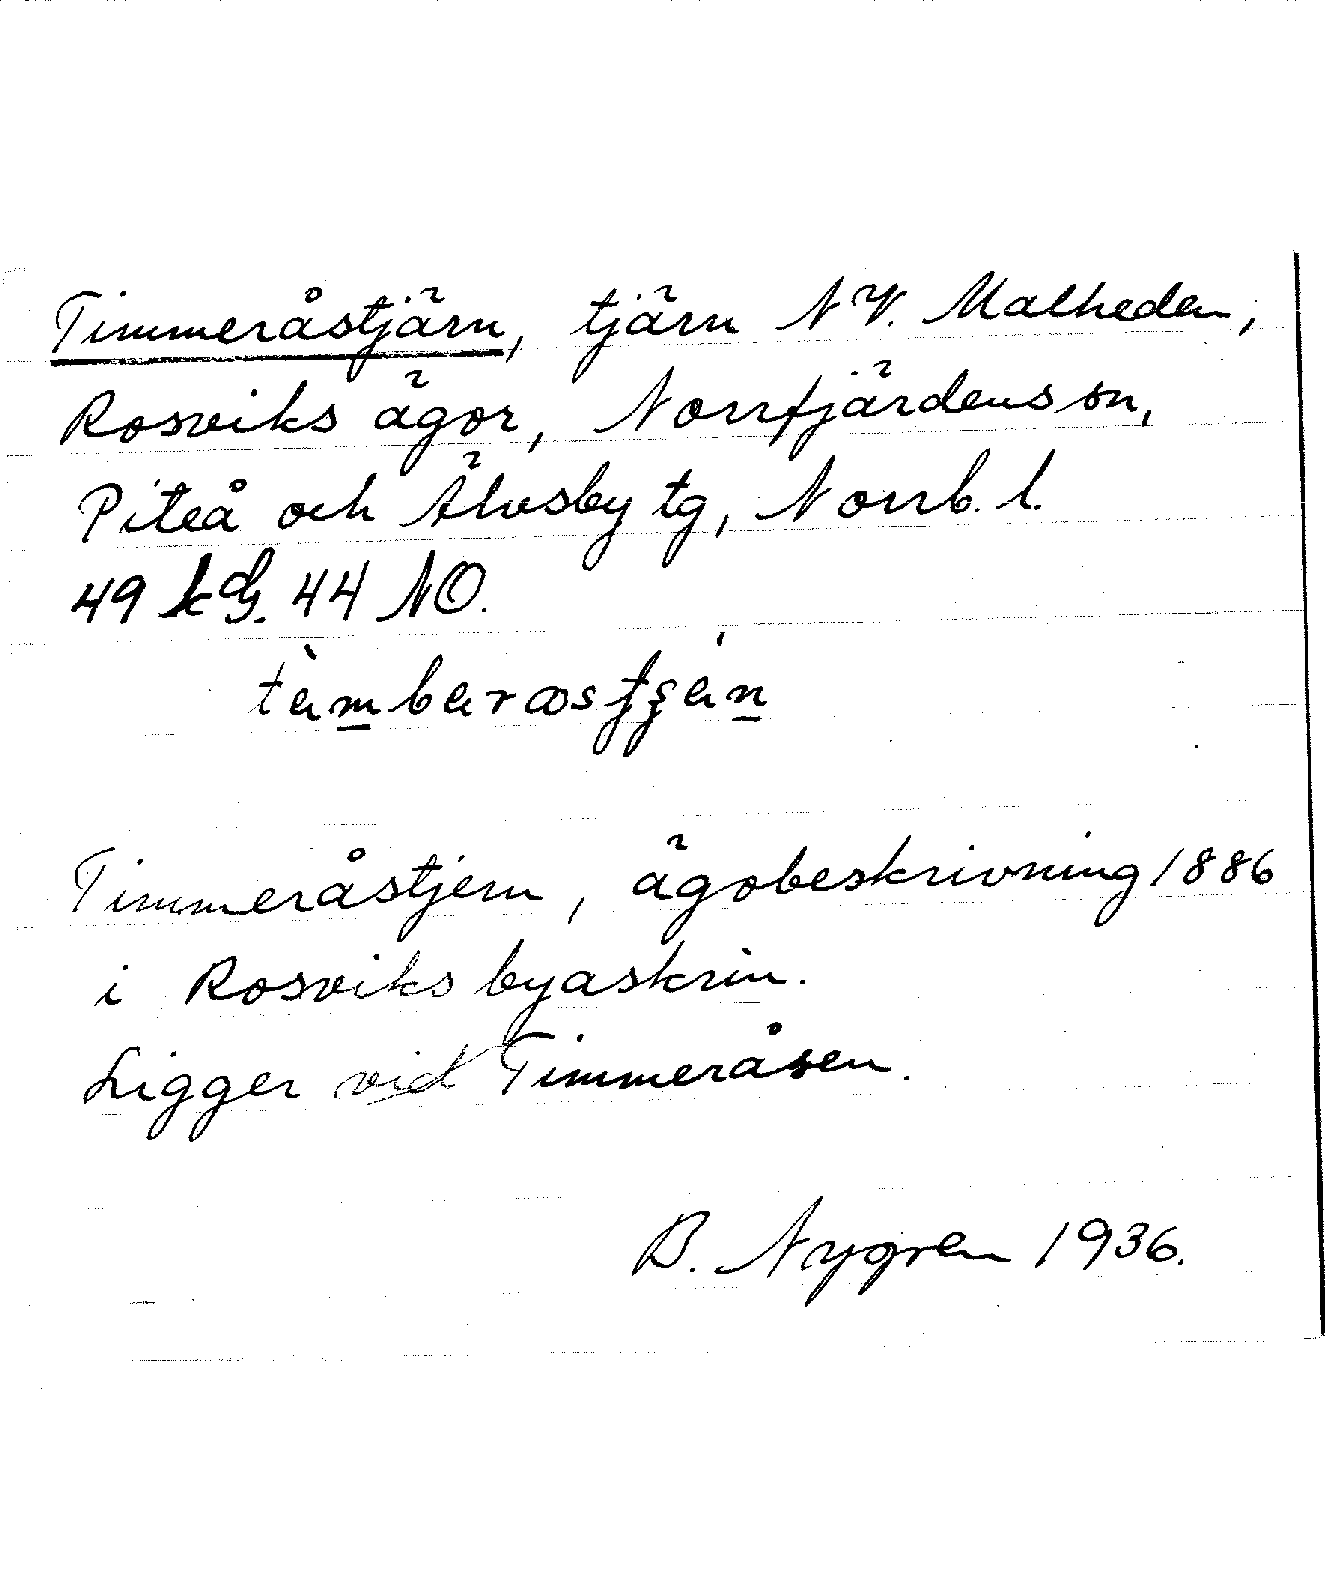 Timmeråstjärn, tjärn NV. Malheden,
Rosviks ägor, Norrfjärdens sn,
Piteå och Älvsby tg, Norrb. l.
49 kG. 44 NO.
Timmeråstjern, ägobeskrivning 1886
i Rosviks byaskrin.
Ligger vid Timmeråsen.
B. Nygren 1936.